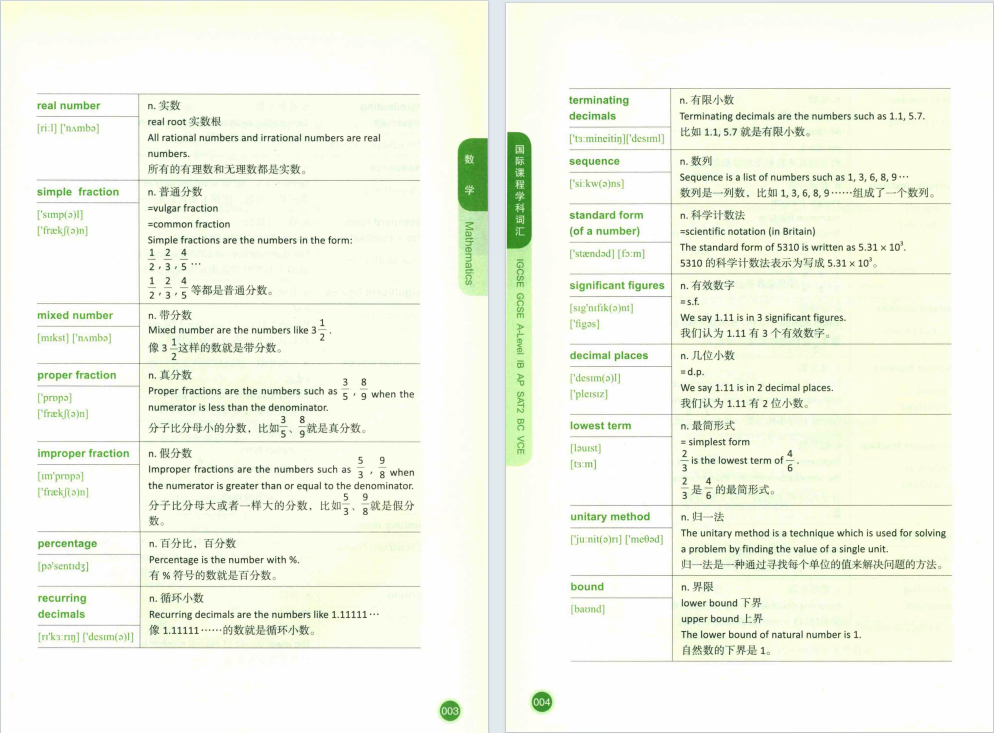 real number
[ri:l] ['nʌmbə]
n. 实数
real root 实数根
All rational numbers and irrational numbers are real
numbers.
所有的有理数和无理数都是实数。
simple fraction
['sɪmp(ə)l]
['frækʃ(ə)n]
n. 普通分数
=vulgar fraction
=common fraction
Simple fractions are the numbers in the form:
1/2, 2/3, 4/5 …
1/2, 2/3, 4/5 等都是普通分数。
mixed number
[mɪkst] ['nʌmbə]
n. 带分数
Mixed number are the numbers like 3 1/2 .
像 3 1/2 这样的数就是带分数。
proper fraction
['prɒpə]
['frækʃ(ə)n]
n. 真分数
Proper fractions are the numbers such as 3/5 , 8/9 when the
numerator is less than the denominator.
分子比分母小的分数，比如 3/5、8/9 就是真分数。
improper fraction
[ɪm'prɒpə]
['frækʃ(ə)n]
n. 假分数
Improper fractions are the numbers such as 5/3 , 9/8 when
the numerator is greater than or equal to the denominator.
分子比分母大或者一样大的分数，比如 5/3、9/8 就是假分
数。
percentage
[pə'sentɪdʒ]
n. 百分比，百分数
Percentage is the number with %.
有 % 符号的数就是百分数。
recurring
decimals
[rɪ'kɜ:rɪŋ] ['desɪm(ə)l]
n. 循环小数
Recurring decimals are the numbers like 1.11111 …
像 1.11111 ……的数就是循环小数。
数学
Mathematics
003
国际课程学科词汇
IGCSE GCSE A-Level IB AP SAT2 BC VCE
terminating
decimals
['tɜ:mineitiŋ]['desɪml]
n. 有限小数
Terminating decimals are the numbers such as 1.1, 5.7.
比如 1.1, 5.7 就是有限小数。
sequence
['si:kw(ə)ns]
n. 数列
Sequence is a list of numbers such as 1, 3, 6, 8, 9 …
数列是一列数，比如 1, 3, 6, 8, 9 ……组成了一个数列。
standard form
(of a number)
['stændəd] [fɔ:m]
n. 科学计数法
=scientific notation (in Britain)
The standard form of 5310 is written as 5.31 × 10³.
5310 的科学计数法表示为写成 5.31 × 10³。
significant figures
[sɪg'nɪfɪk(ə)nt]
['fɪgəs]
n. 有效数字
= s.f.
We say 1.11 is in 3 significant figures.
我们认为 1.11 有 3 个有效数字。
decimal places
['desɪm(ə)l]
['pleɪsɪz]
n. 几位小数
= d.p.
We say 1.11 is in 2 decimal places.
我们认为 1.11 有 2 位小数。
lowest term
[ləuɪst]
[tɜ:m]
n. 最简形式
= simplest form
2/3 is the lowest term of 4/6 .
2/3 是 4/6 的最简形式。
unitary method
['ju:nɪt(ə)rɪ] ['meθəd]
n. 归一法
The unitary method is a technique which is used for solving
a problem by finding the value of a single unit.
归一法是一种通过寻找每个单位的值来解决问题的方法。
bound
[baʊnd]
n. 界限
lower bound 下界
upper bound 上界
The lower bound of natural number is 1.
自然数的下界是 1。
004